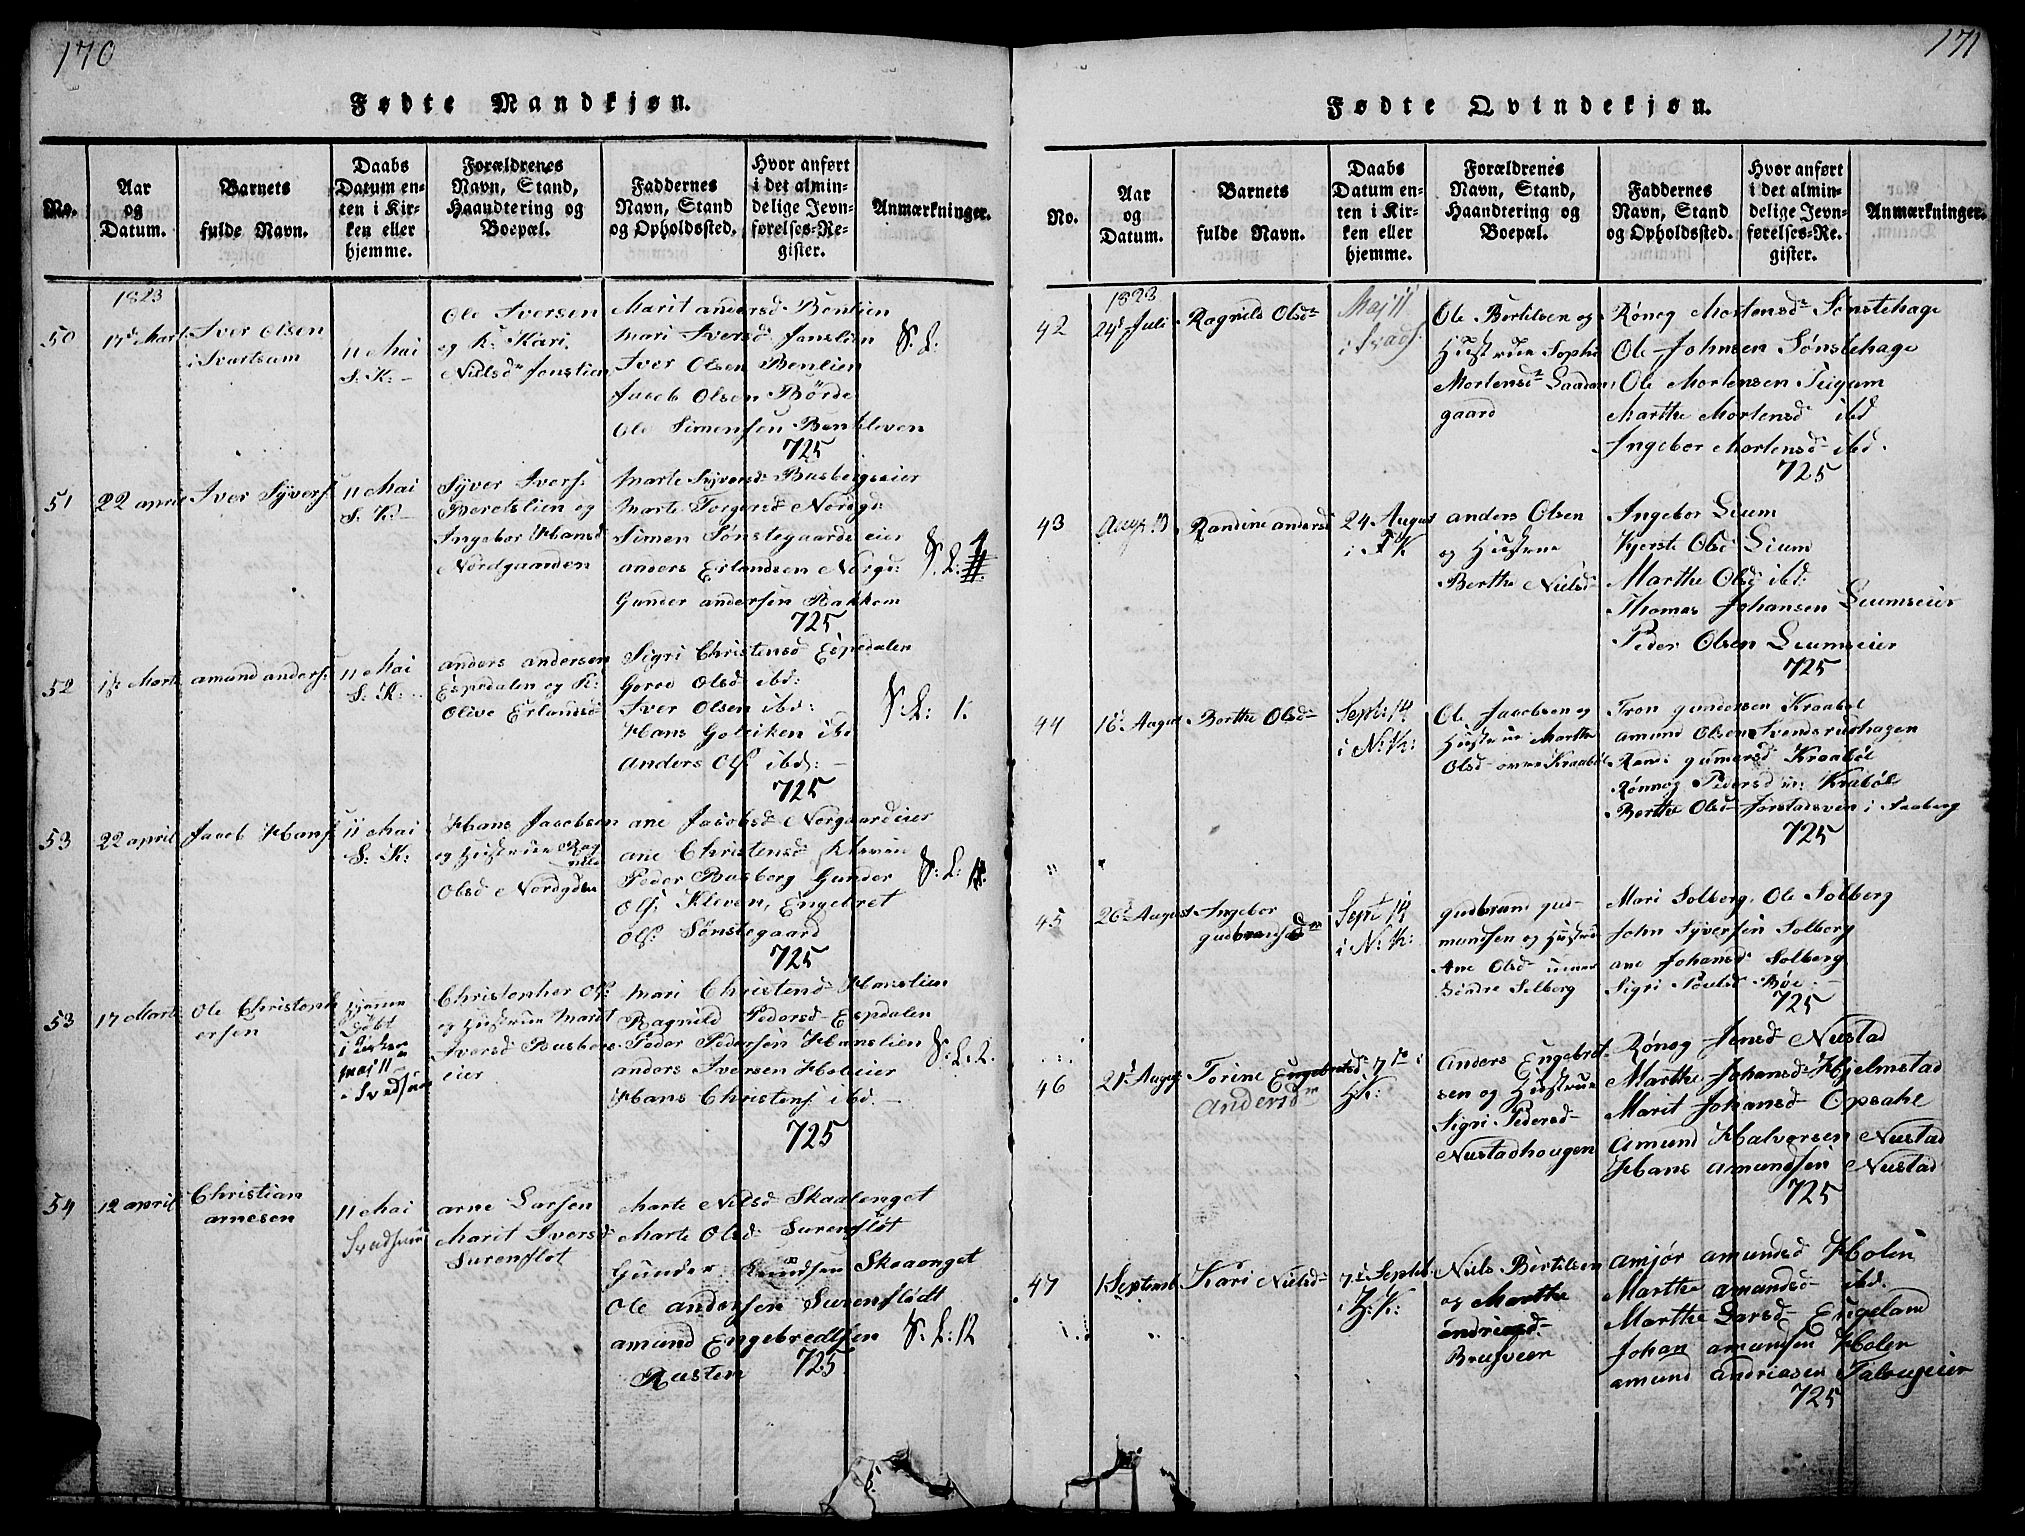 170
Fødte Mandkjøn.
No.
Aar
og
Datum.
Barnets
fulde Navn.
Daabs
Datum en-
ten i Kir-
ken eller
hjemme.
Forældrenes
Navn, Stand,
Haandtering og
Boepæl.
Faddernes
Navn, Stand
og Opholdssted.
Hvor anført
i det almin-
delige Jevn-
førelses-Re-
gister.
Anmærkninger.
1823
50
17d Marti
Iver Olsen
i Svartsum
11 Mai
S: K: -
Ole Iversen
og K: Kari
Nielsd
Marit andersd Benlien
Mari Iversd
Iver Olsen Benlien
Jacob Olsen Börde
Ole Simensen
725
S: L:
51
22 april
Iver Syvers:
11 Mai
S: K:
Syver Ivers:
Beretslien og
Ingebor Hansd
Nordgaarden
Marte Syversd Busbergseier
Marte Torgersd Nordg:
Simen Sønstegaardseier
anders Erlandsen Norg:
Gunder andersen Bakken
725
S: L:
52
amund anders:
11 Mai
S: K:
anders andersen
Espedalen og K:
Olive Erlandsd
Sigri Christensd Espedalen
Goroe Olsd ibd:
Iver Olsen ibd:
Hans ibd
Anders Ols: ibd: -
725
S: L: 1.
53
22 april
Jacob Hans:
11 Mai
S: K:
Hans Jacobsen
og Hustrue Rag
nild
Olsd Nordgden
ane Jacobsd Norgaardeier
ane Christensd Kleven
Peder Busberg Gunder
Ols: Kleven, Engebret
Ols: Sønstegaard
725
S: L:
53
17 Marti
Ole Christoph
ersen
hjemme
døbt
i Kirken
maj 11
Christopher Ols:
og Hustrue Marit
Iversd Busbergs
eier
Mari Christensd Hanslien
Ragnild Pedersd Espedalen
Peder Pedersen Hanslien
anders Iversen Holeier
Hans Christens: ibd. -
725
S: L: 2.
54
12 april
Christian
arnesen
11 Mai
arne Larsen
Marit Iversd
Surenflot
Marte Nilsd Skaalenget
Marte Olsd Surenfløt
Gunder Knudsen Skaaenget
Ole andersen Surenflødt
amund Engebredtsen
Rusten
725
S: L: 12
171
Fødte Qvindekjøn.
No.
Aar
og
Datum.
Barnets
fulde Navn.
Daabs
Datum en-
ten i Kir-
ken eller
hjemme.
Forældrenes
Navn, Stand,
Haandtering og
Boepæl.
Faddernes
Navn, Stand
og Opholdssted.
Hvor anført
i det almin-
delige Jevn-
førelses-Re-
gister.
Anmærkninger.
1823
42
24d Juli
Ragnild Olsdr
Maj 11
Ole Bertilsen og
Hustrue Sophi
Mortensdr
gaard
Rønog Mortensdr Sønstehage
Ole Johnsen Sønstehage
Ole Mortensen Teigum
Marthe Mortensd ibd
Ingebor Mortensd ibd.
725
43
Randine andersd
24 August
i F K
anders Olsen
og Hustrue
Berthe Nielsd
Ingebor Lium
Kjerste Olsd Lium
Marthe Olsd ibd:
Thomas Johansen Liumseier
Peder Olsen Liumseier
725
44
16 August
Berthe Olsd
Septbr: 14
i N: K:
Ole Jacobsen og
Hustrue Marthe
Olsd Kraabøl
Tron gundersen Kraabøl
amund Olsen
Randi gumersd Kraabøl
Rønnog Pedersd Krabøl
Berthe Olsd
725
45
26d August
Ingebor
gudbransdr
Septbr 14
i N: K:
gudbrand gud-
mundsen og Hustrue
Ane Olsd
Solberg
Mari Solberg, Ole Solberg
John Syversen Solberg
ane Johansd Solberg
Sigri Povlsd Bøe. -
725
46
21d August
Torine Engebretsd
Andersdr
7de
H: K:
Anders Engebret-
sen og Hustrue
Sigri Pedersd
Nustadhougen
Rønog Jensd Nustad
Marthe Johansd Hjelmstad
Marit Johansd Opsahl
amund Halvorsen Nustad
Hans amundsen Nustad
725
47
1 Septemb
Kari Nielsd
7de Septbr.
i H: K:
Niels Bertilsen
og Marthe
andreasd
Brusveier
amjør amundsd Holen
Marthe amundsd ibd.
Marthe Larsd Engeland
Johan amundsen Holen
amund andreasen
725